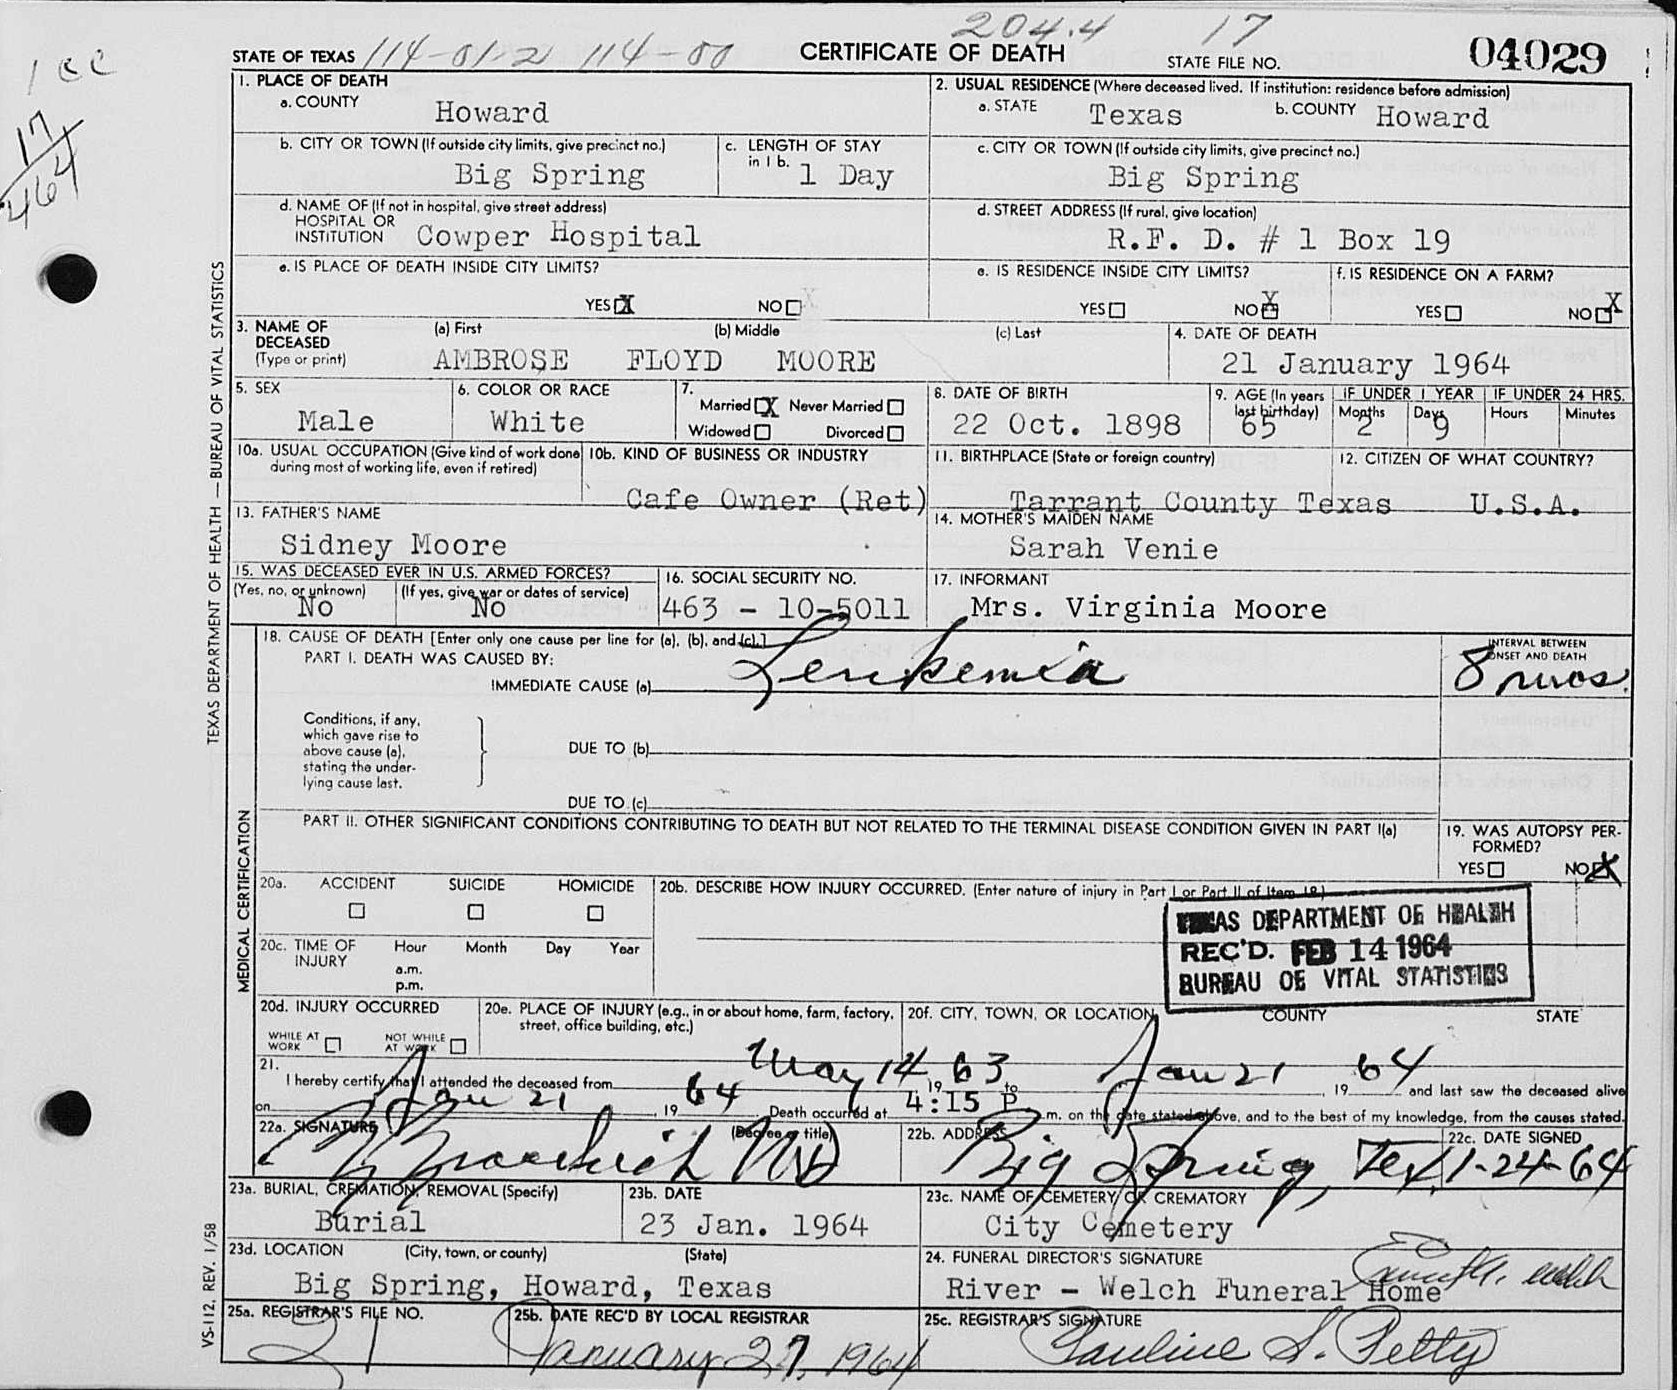 204.4 17
STATE OF TEXAS 114-01-2 114-00 CERTIFICATE OF DEATH STATE FILE NO. 04029
17
464
1. PLACE OF DEATH
a. COUNTY
Howard
2. USUAL RESIDENCE (Where deceased lived. If institution: residence before admission)
a. STATE Texas b. COUNTY Howard
b. CITY OR TOWN (If outside city limits, give precinct no.)
Big Spring
c. LENGTH OF STAY
in 1 b. 1 Day
c. CITY OR TOWN (If outside city limits, give precinct no.)
Big Spring
d. NAME OF (If not in hospital, give street address)
HOSPITAL OR
INSTITUTION Cowper Hospital
d. STREET ADDRESS (If rural, give location)
R.F. D. # 1 Box 19
e. IS PLACE OF DEATH INSIDE CITY LIMITS?
YES X NO
e. IS RESIDENCE INSIDE CITY LIMITS?
YES NO X
f. IS RESIDENCE ON A FARM?
YES NO X
3. NAME OF
DECEASED
(Type or print)
(a) First (b) Middle (c) Last
AMBROSE FLOYD MOORE
4. DATE OF DEATH
21 January 1964
5. SEX
Male
6. COLOR OR RACE
White
7.
Married X Never Married
Widowed Divorced
8. DATE OF BIRTH
22 Oct. 1898
9. AGE (In years
last birthday)
65
IF UNDER 1 YEAR
Months Days
2 9
IF UNDER 24 HRS.
Hours Minutes
10a. USUAL OCCUPATION (Give kind of work done
during most of working life, even if retired)
10b. KIND OF BUSINESS OR INDUSTRY
Cafe Owner (Ret)
11. BIRTHPLACE (State or foreign country)
Tarrant County Texas
12. CITIZEN OF WHAT COUNTRY?
U.S.A.
13. FATHER'S NAME
Sidney Moore
14. MOTHER'S MAIDEN NAME
Sarah Venie
15. WAS DECEASED EVER IN U.S. ARMED FORCES?
(Yes, no, or unknown) (If yes, give war or dates of service)
No No
16. SOCIAL SECURITY NO.
463 - 10-5011
17. INFORMANT
Mrs. Virginia Moore
18. CAUSE OF DEATH [Enter only one cause per line for (a), (b), and (c).]
PART I. DEATH WAS CAUSED BY:
IMMEDIATE CAUSE (a) Leukemia
INTERVAL BETWEEN
ONSET AND DEATH
8 mos.
Conditions, if any,
which gave rise to
above cause (a),
stating the under-
lying cause last.
DUE TO (b)
DUE TO (c)
PART II. OTHER SIGNIFICANT CONDITIONS CONTRIBUTING TO DEATH BUT NOT RELATED TO THE TERMINAL DISEASE CONDITION GIVEN IN PART I(a)
19. WAS AUTOPSY PER-
FORMED?
YES NO X
20a. ACCIDENT SUICIDE HOMICIDE
20b. DESCRIBE HOW INJURY OCCURRED. (Enter nature of injury in Part I or Part II of Item 18.)
TEXAS DEPARTMENT OF HEALTH
REC'D. FEB 14 1964
BUREAU OF VITAL STATISTICS
20c. TIME OF
INJURY
Hour Month Day Year
a.m.
p.m.
20d. INJURY OCCURRED
WHILE AT
WORK
NOT WHILE
AT WORK
20e. PLACE OF INJURY (e.g., in or about home, farm, factory,
street, office building, etc.)
20f. CITY, TOWN, OR LOCATION COUNTY STATE
21.
I hereby certify that I attended the deceased from May 14 1963 to Jan 21, 1964 and last saw the deceased alive
on Jan 21, 1964 Death occurred at 4:15 P m. on the date stated above, and to the best of my knowledge, from the causes stated.
22a. SIGNATURE (Degree or title)
MD
22b. ADDRESS
Big Spring, Tex.
22c. DATE SIGNED
1-24-64
23a. BURIAL, CREMATION, REMOVAL (Specify)
Burial
23b. DATE
23 Jan. 1964
23c. NAME OF CEMETERY OR CREMATORY
City Cemetery
23d. LOCATION (City, town, or county) (State)
Big Spring, Howard, Texas
24. FUNERAL DIRECTOR'S SIGNATURE
River - Welch Funeral Home
25a. REGISTRAR'S FILE NO.
21
25b. DATE REC'D BY LOCAL REGISTRAR
January 27, 1964
25c. REGISTRAR'S SIGNATURE
Pauline S. Petty
TEXAS DEPARTMENT OF HEALTH — BUREAU OF VITAL STATISTICS
MEDICAL CERTIFICATION
VS-112, REV. 1/58